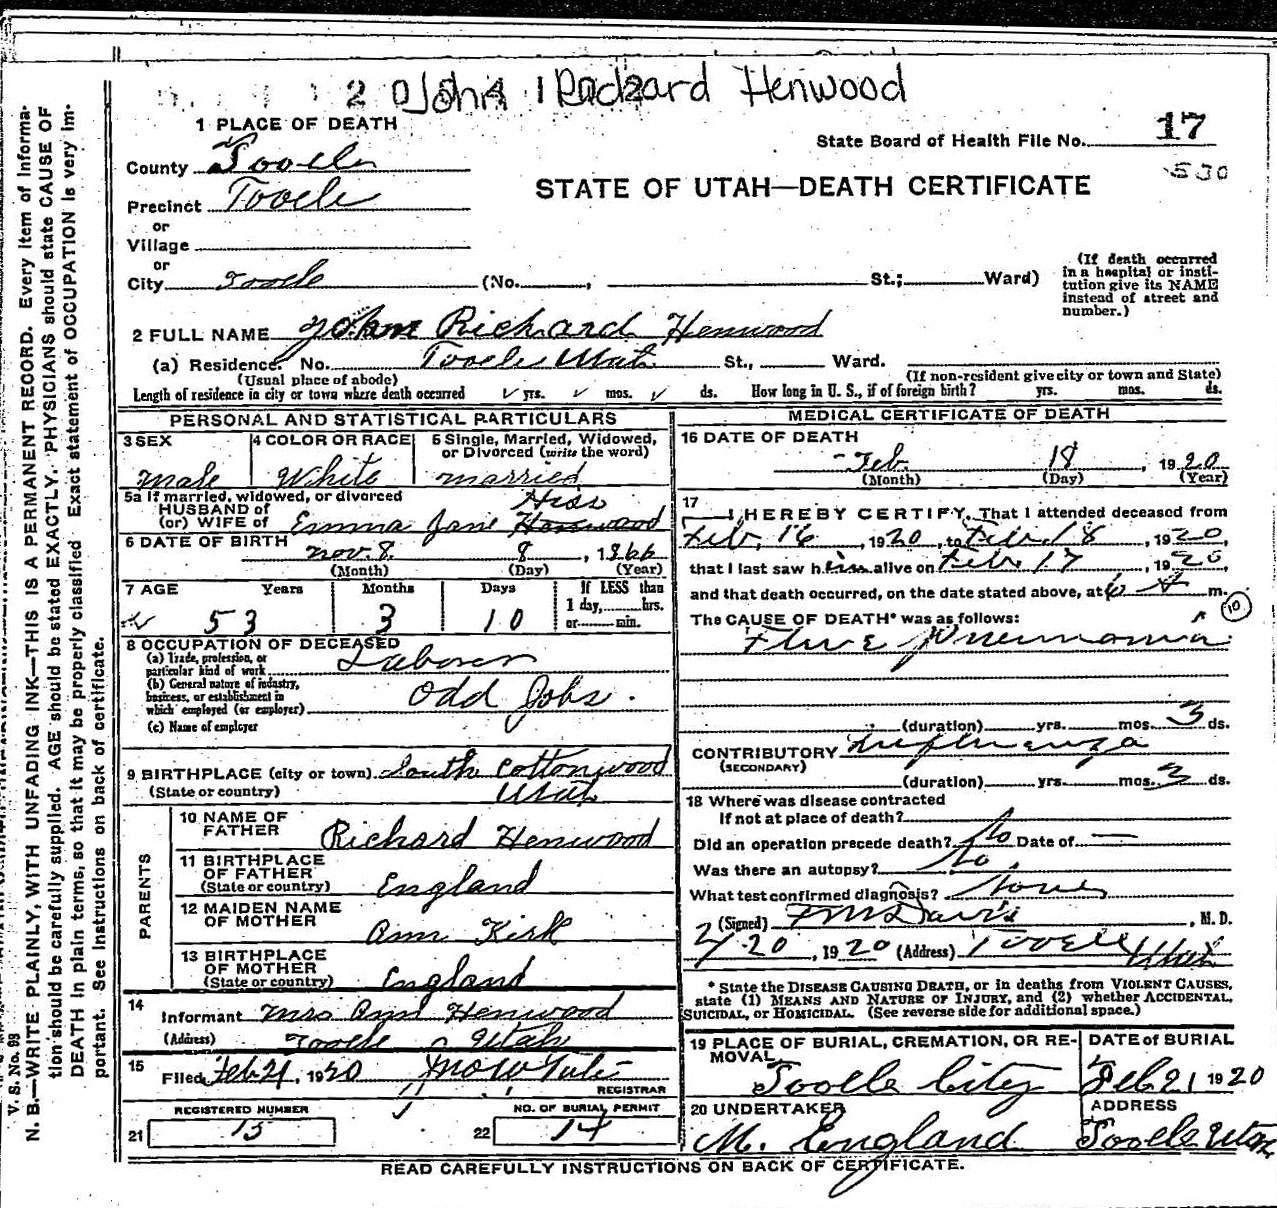 2 John Richard Henwood
1 PLACE OF DEATH
State Board of Health File No. 17
530
County Tooele
STATE OF UTAH—DEATH CERTIFICATE
Precinct Tooele
or
Village
or
City Tooele (No. , St.; Ward)
(If death occurred in a hospital or institution give its NAME instead of street and number.)
2 FULL NAME John Richard Henwood
(a) Residence. No. Tooele Utah St., Ward.
(Usual place of abode) (If non-resident give city or town and State)
Length of residence in city or town where death occurred yrs. mos. ds. How long in U. S., if of foreign birth? yrs. mos. ds.
PERSONAL AND STATISTICAL PARTICULARS
3 SEX Male
4 COLOR OR RACE White
5 Single, Married, Widowed, or Divorced (write the word) married
5a If married, widowed, or divorced
HUSBAND of
(or) WIFE of Emma Jane Henwood
6 DATE OF BIRTH Nov. 8. 8, 1866
(Month) (Day) (Year)
7 AGE Years Months Days If LESS than
1 day, hrs.
or min.
53 3 10
8 OCCUPATION OF DECEASED
(a) Trade, profession, or particular kind of work Laborer
(b) General nature of industry, business, or establishment in which employed (or employer) Odd Jobs.
(c) Name of employer
9 BIRTHPLACE (city or town) South Cottonwood
(State or country) Utah
PARENTS
10 NAME OF FATHER Richard Henwood
11 BIRTHPLACE OF FATHER (State or country) England
12 MAIDEN NAME OF MOTHER Ann Kirk
13 BIRTHPLACE OF MOTHER (State or country) England
14
Informant Mrs Ann Henwood
(Address) Tooele Utah
15
Filed Feb 21, 1920
REGISTRAR
REGISTERED NUMBER
21 15
NO. OF BURIAL PERMIT
22 14
MEDICAL CERTIFICATE OF DEATH
16 DATE OF DEATH
Feb. 18, 1920
(Month) (Day) (Year)
17
I HEREBY CERTIFY, That I attended deceased from
Feb. 16 1920, to Feb. 18, 1920,
that I last saw him alive on Feb. 17, 1920
and that death occurred, on the date stated above, at 6 A m.
10
The CAUSE OF DEATH* was as follows:
Flu & Pneumonia
(duration) yrs. mos. 3 ds.
CONTRIBUTORY Influenza
(SECONDARY)
(duration) yrs. mos. 3 ds.
18 Where was disease contracted
If not at place of death?
Did an operation precede death? No Date of —
Was there an autopsy? No.
What test confirmed diagnosis? None
(Signed) F M Davis, M. D.
2/20, 1920 (Address) Tooele Utah
* State the DISEASE CAUSING DEATH, or in deaths from VIOLENT CAUSES,
state (1) MEANS AND NATURE OF INJURY, and (2) whether ACCIDENTAL,
SUICIDAL, or HOMICIDAL. (See reverse side for additional space.)
19 PLACE OF BURIAL, CREMATION, OR REMOVAL
Tooele City
DATE of BURIAL
Feb 21 1920
20 UNDERTAKER
M. England
ADDRESS
Tooele Utah
READ CAREFULLY INSTRUCTIONS ON BACK OF CERTIFICATE.
V. S. No. 98
N. B.—WRITE PLAINLY, WITH UNFADING INK—THIS IS A PERMANENT RECORD. Every item of information should be carefully supplied. AGE should be stated EXACTLY. PHYSICIANS should state CAUSE OF DEATH in plain terms, so that it may be properly classified. Exact statement of OCCUPATION is very important. See instructions on back of certificate.